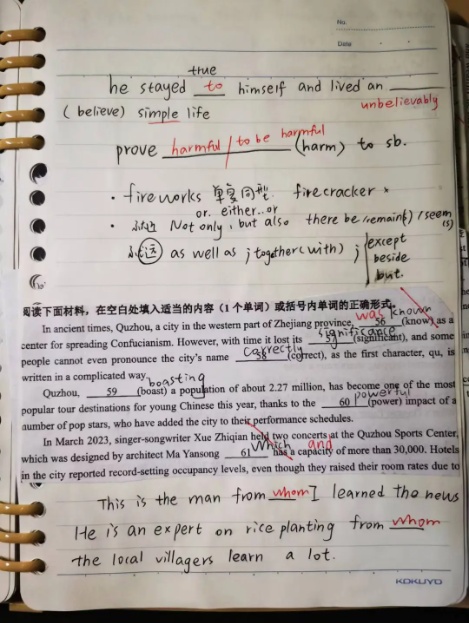 No.
Date
true
he stayed to himself and lived an ________
(believe) simple life unbelievably
prove harmful / to be harmful (harm) to sb.
· fireworks 单复同型. firecracker
or. either..or
· 就近 Not only, but also there be/remain(s) / seem(s)
就远 as well as ; together(with) ; except
beside
but.
阅读下面材料，在空白处填入适当的内容（1 个单词）或括号内单词的正确形式。
was known
In ancient times, Quzhou, a city in the western part of Zhejiang province, 56 (know) as a
significance
center for spreading Confucianism. However, with time it lost its 57 (significant), and some
correctly
people cannot even pronounce the city's name 58 (correct), as the first character, qu, is
written in a complicated way.
boasting
Quzhou, 59 (boast) a population of about 2.27 million, has become one of the most
powerful
popular tour destinations for young Chinese this year, thanks to the 60 (power) impact of a
number of pop stars, who have added the city to their performance schedules.
In March 2023, singer-songwriter Xue Zhiqian held two concerts at the Quzhou Sports Center,
which and
which was designed by architect Ma Yansong 61 has a capacity of more than 30,000. Hotels
in the city reported record-setting occupancy levels, even though they raised their room rates due to
This is the man from whom I learned the news
He is an expert on rice planting from whom
the local villagers learn a lot.
KOKUYO